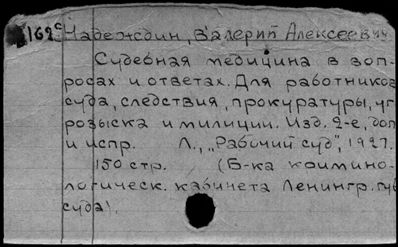 1629 Надеждин, Валерий Алексеевич
Судебная медицина в воп-
росах и ответах. Для работников
суда, следствия, прокуратуры, уг.
розыска и милиции. Изд. 2-е, доп.
и испр. Л., „Рабочий суд", 1927.
150 стр. (Б-ка кримино-
логическ. кабинета Ленингр. губ
суда).